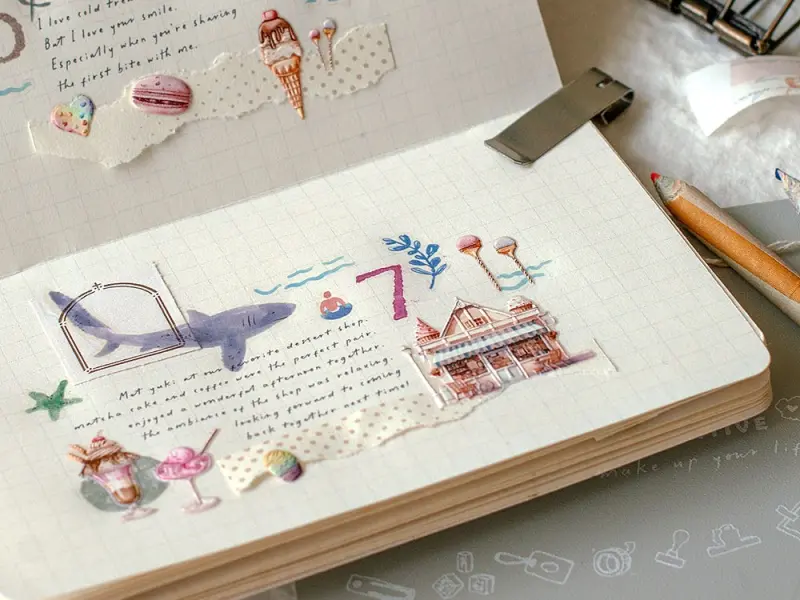 I love cold
But I love your smile.
Especially when you're sharing
the first bite with me.
7
Met yuki at our favorite dessert shop.
matcha cake and coffee were the perfect pair.
enjoyed a wonderful afternoon together.
the ambiance of the shop was relaxing.
looking forward to coming
back together next time!
make up your life